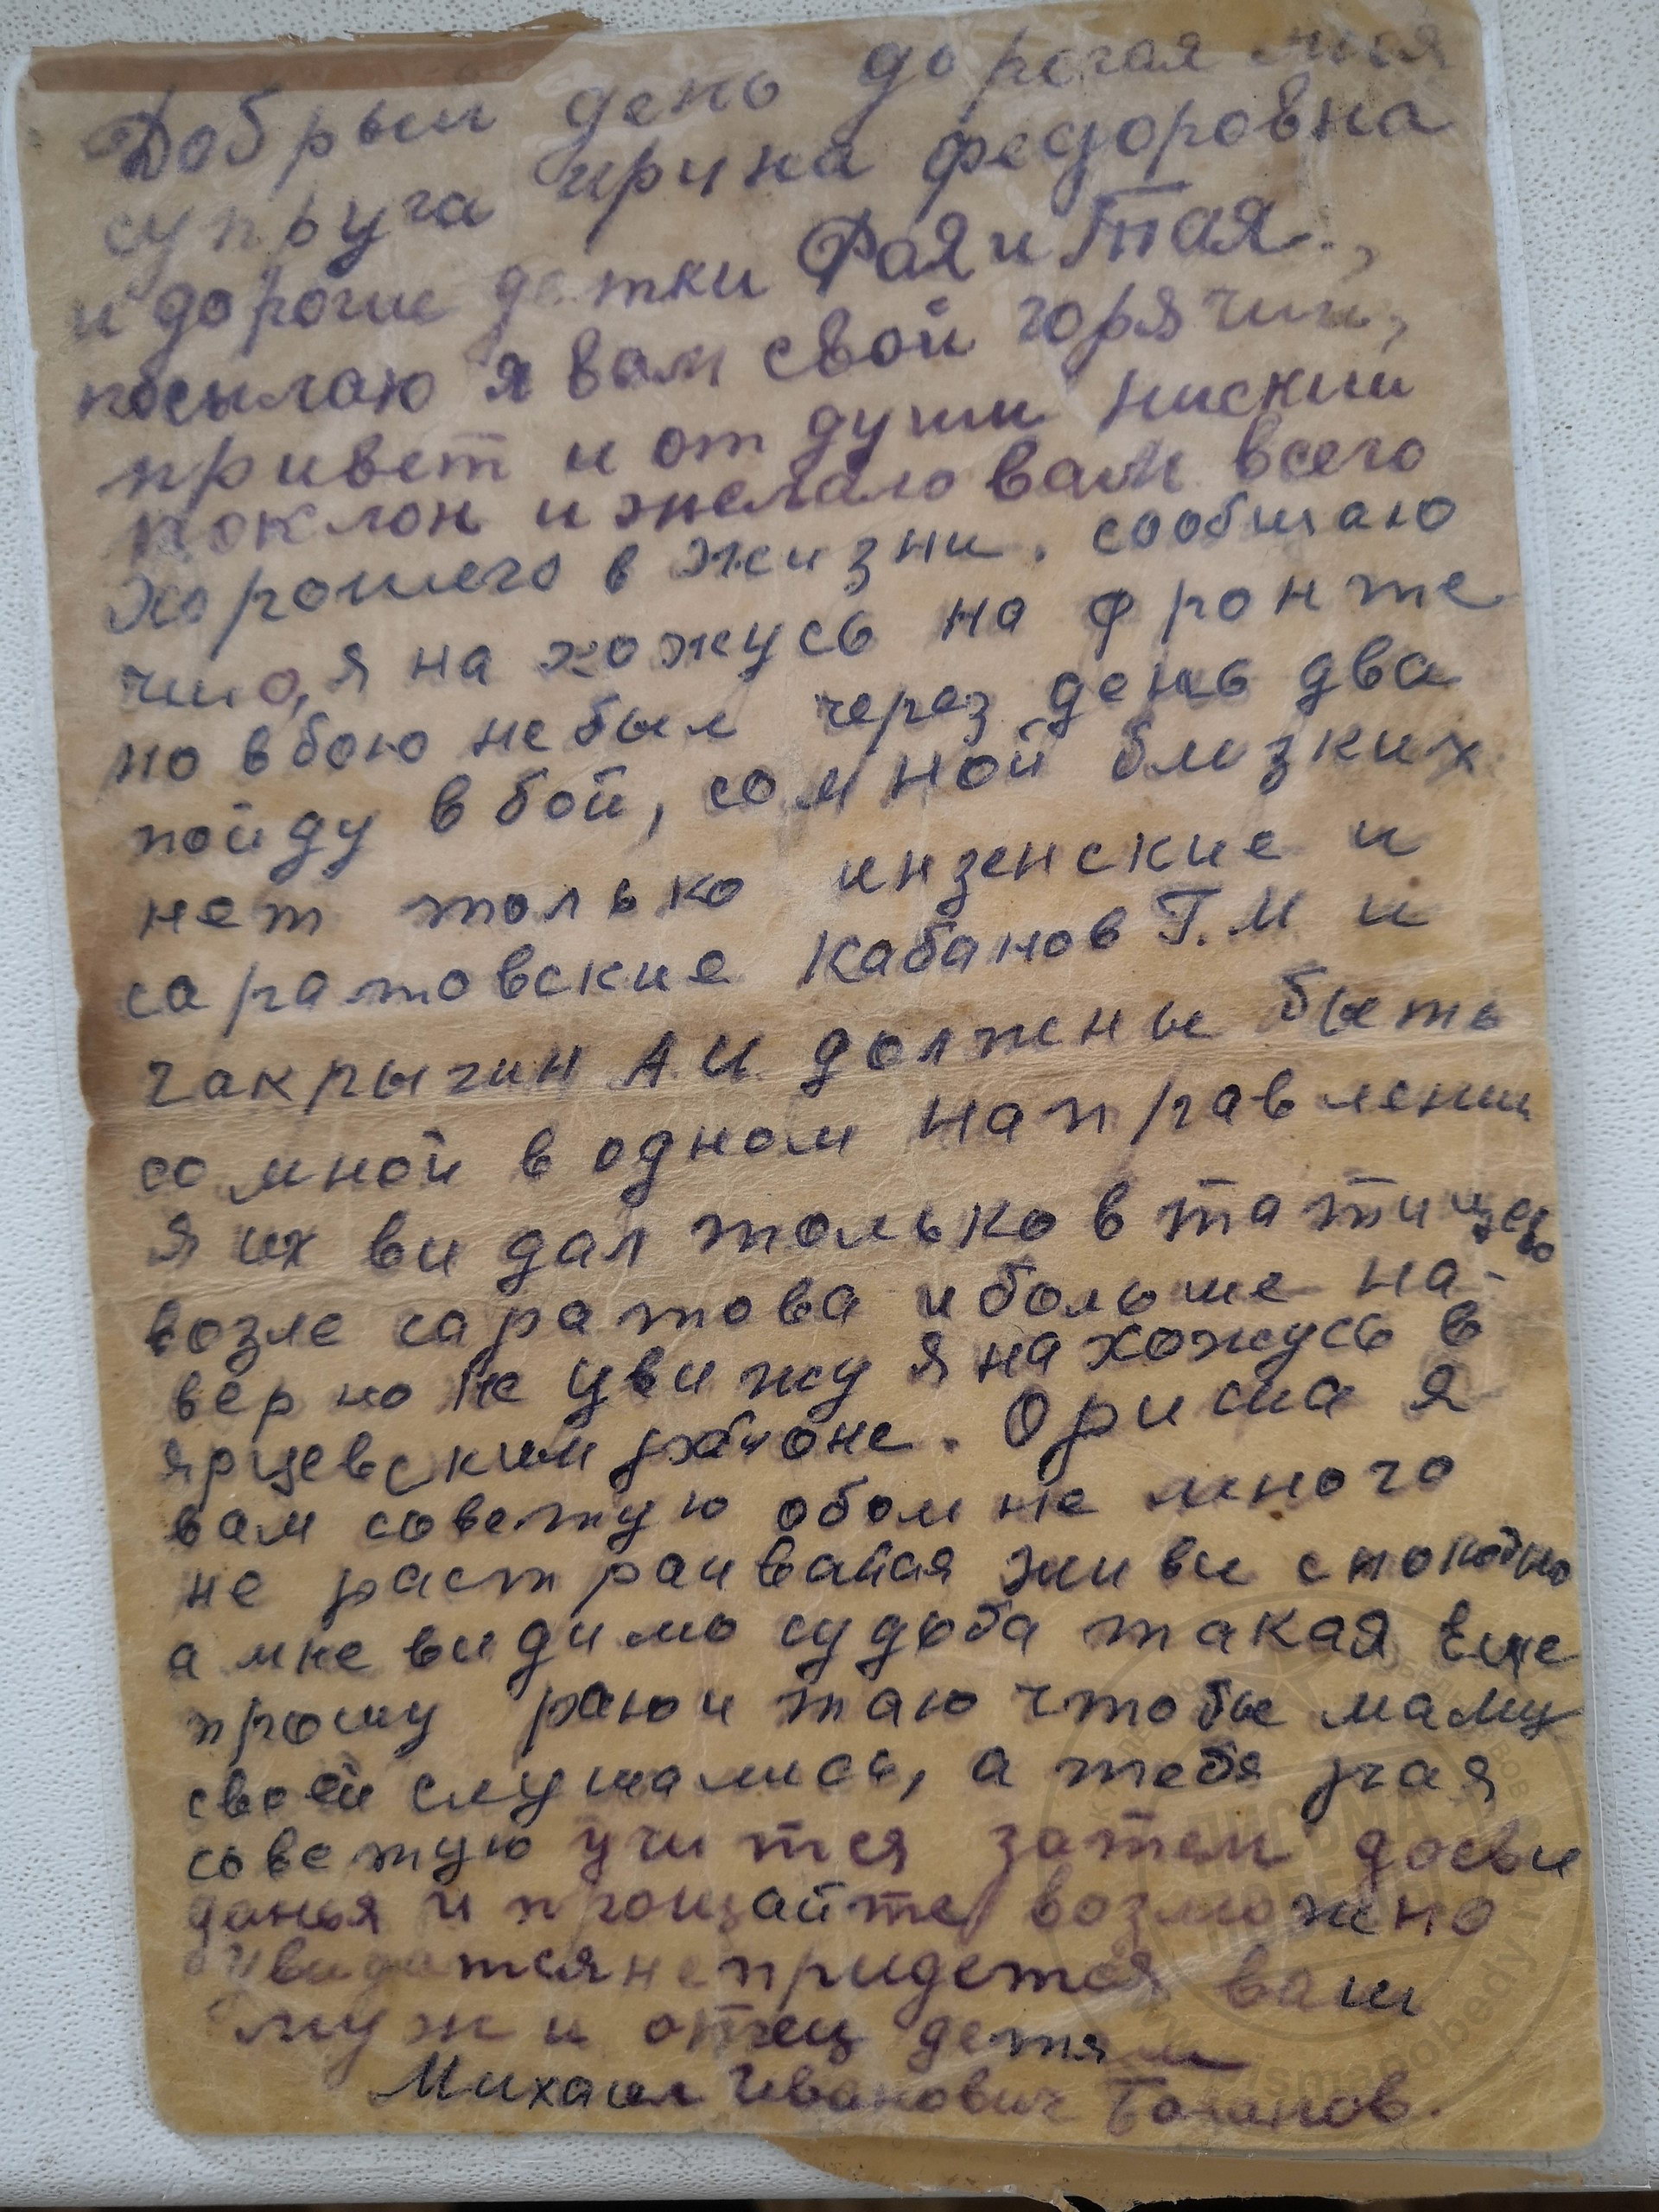 Добрыи день дорогая моя
супруга ирина федоровна
и дорогие детки Фая и Тая.,
посылаю я вам свой горячии,
привет и от души ниский
поклон и желаю вам всего
хорошего в жизни. сообшаю
что, я на хожусь на фронте
но в бою не был через день два
пойду в бой, со мной близких
нет только инзенские и
саратовские кабанов Г.М и
чакрыгин А И должны быть
со мной в одном направлении
я их ви дал только в татищево
возле саратова и больше на-
верно не увижу я на хожусь в
ярцевским районе. Ориша я
вам советую обом не много
не раст раивайая живи спокойно
а мне видимо судьба такая Еще
прошу раю и таю чтобы маму
своей слушались, а тебя рая
советую учится затем досви
данья и прощайте возможно
увидатся непридется ваш
муж и отец детям
Михаил Иванович Баганов.
ПИСЬМА
ПОБЕДЫ